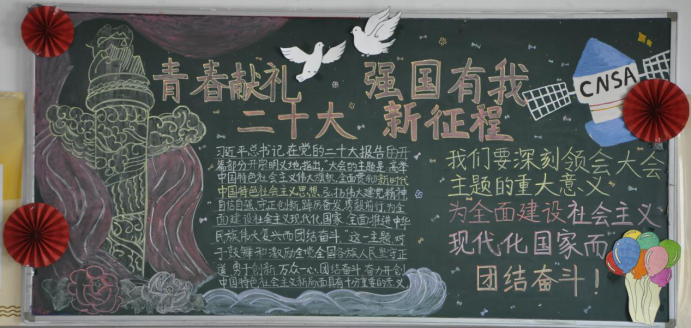 青春献礼 强国有我
二十大 新征程
CNSA
习近平总书记在党的二十大报告的开
篇部分开宗明义地指出,"大会的主题是:高举
中国特色社会主义伟大旗帜,全面贯彻新时代
中国特色社会主义思想,弘扬伟大建党精神,
自信自强、守正创新,踔厉奋发、勇毅前行,为全
面建设社会主义现代化国家、全面推进中华
民族伟大复兴而团结奋斗。"这一主题,对
于鼓舞和激励全党全国各族人民坚守正
道、勇于创新、万众一心、团结奋斗、奋力开创
中国特色社会主义新局面具有十分重要的意义
我们要深刻领会大会
主题的重大意义
为全面建设社会主义
现代化国家而
团结奋斗!